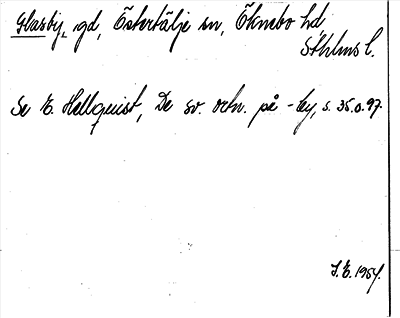 Glasby, gd, Östertälje sn, Öknebo hd,
Sthlms l.
Se E. Hellquist, De sv. ortn. på -by, s. 35 o. 97.
J.E. 1954.